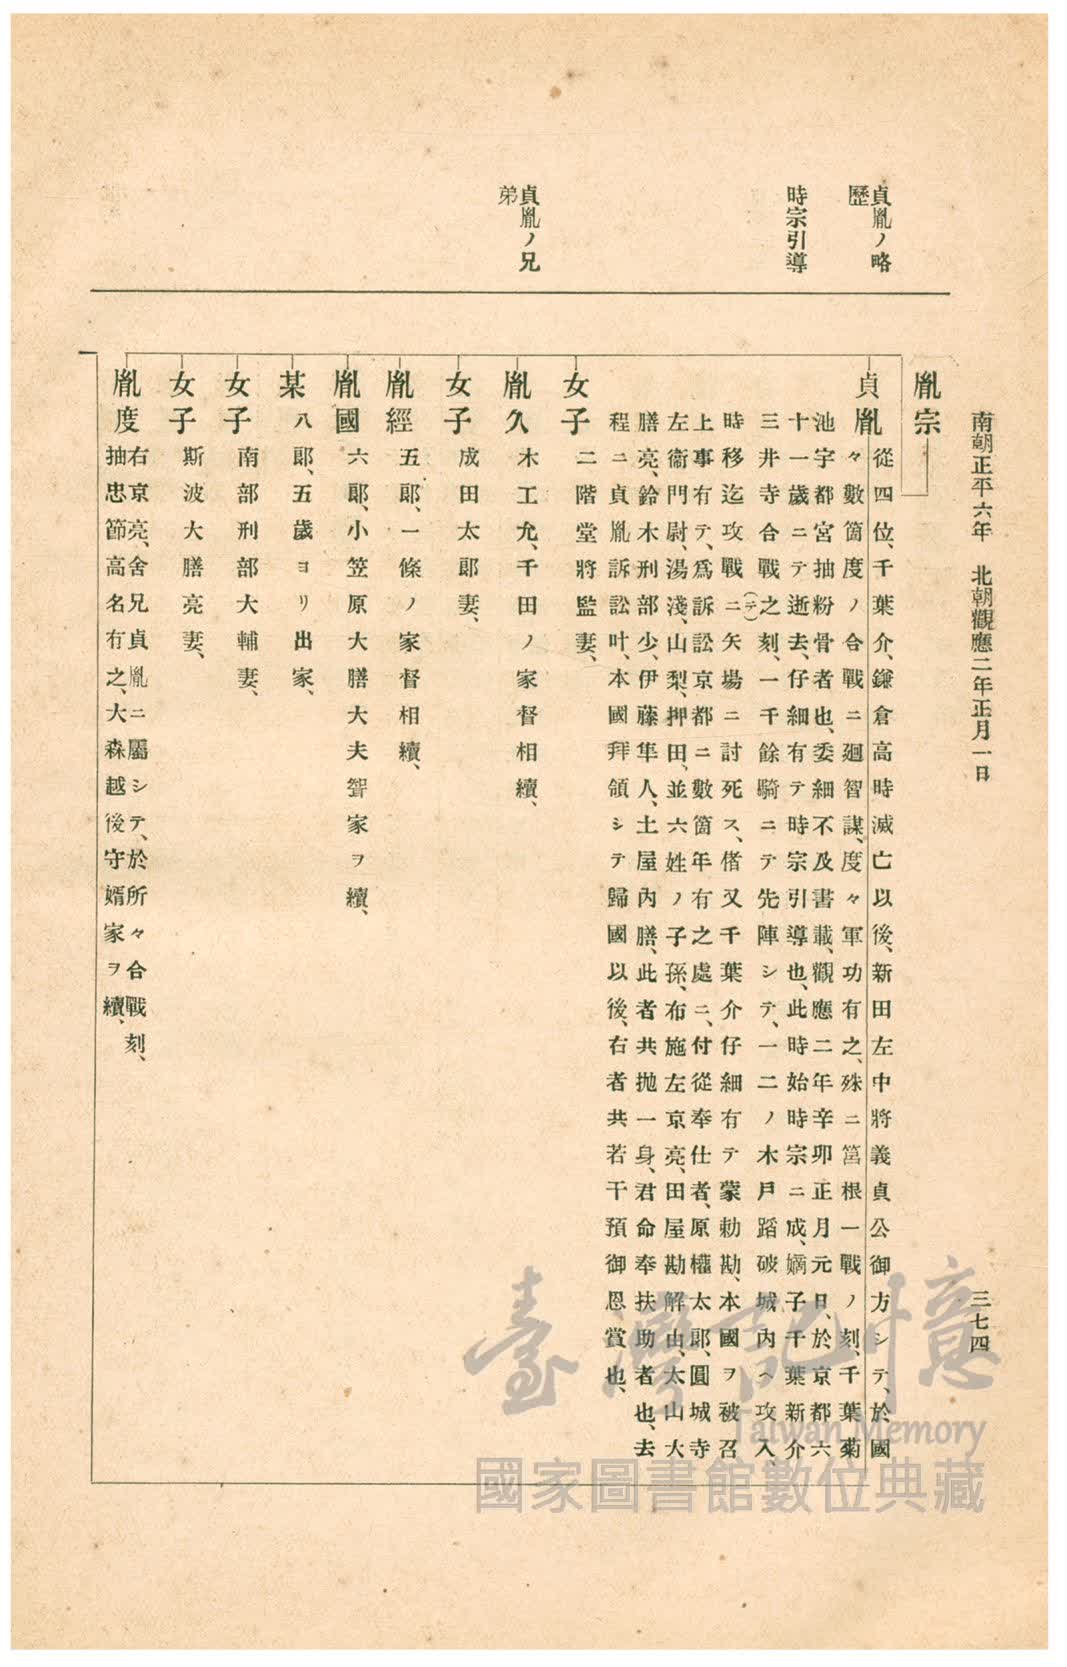 南朝正平六年 北朝觀應二年正月一日
三七四
貞胤ノ略
歷
時宗引導
貞胤ノ兄
弟
胤宗
貞胤
從四位、千葉介、鎌倉高時滅亡以後、新田左中將義貞公御方シテ、於國
々數箇度ノ合戰ニ廻智謀、度々軍功有之、殊ニ筥根一戰ノ刻、千葉菊
池宇都宮抽粉骨者也、委細不及書載、觀應二年辛卯正月元日、於京都六
十一歲ニテ逝去、仔細有テ時宗引導也、此時始時宗ニ成、嫡子千葉新介
三井寺合戰之刻、一千餘騎ニテ先陣シテ、一二ノ木戶蹈破城內ヘ攻入、
時移迄攻戰ニ(テ)矢場ニ討死ス、偖又千葉介仔細有テ蒙勅勘、本國ヲ被召
上事有テ、爲訴訟京都ニ數箇年有之處ニ、付從奉仕者、原權太郞、圓城寺
左衞門尉、湯淺、山梨、押田、並六姓ノ子孫、布施左京亮、田屋勘解由、太山大
膳亮、鈴木刑部少、伊藤隼人、土屋內膳、此者共拋一身、君命奉扶助者也、去
程ニ貞胤訴訟叶、本國拜領シテ歸國以後、右者共若干預御恩賞也、
女子 二階堂將監妻、
胤久 木工允、千田ノ家督相續、
女子 成田太郞妻、
胤經 五郞、一條ノ家督相續、
胤國 六郞、小笠原大膳大夫聟家ヲ續、
某 八郞、五歲ヨリ出家、
女子 南部刑部大輔妻、
女子 斯波大膳亮妻、
胤度 右京亮、舍兄貞胤ニ屬シテ、於所々合戰刻、
抽忠節高名有之、大森越後守婿家ヲ續、
臺灣記憶
Taiwan Memory
國家圖書館數位典藏